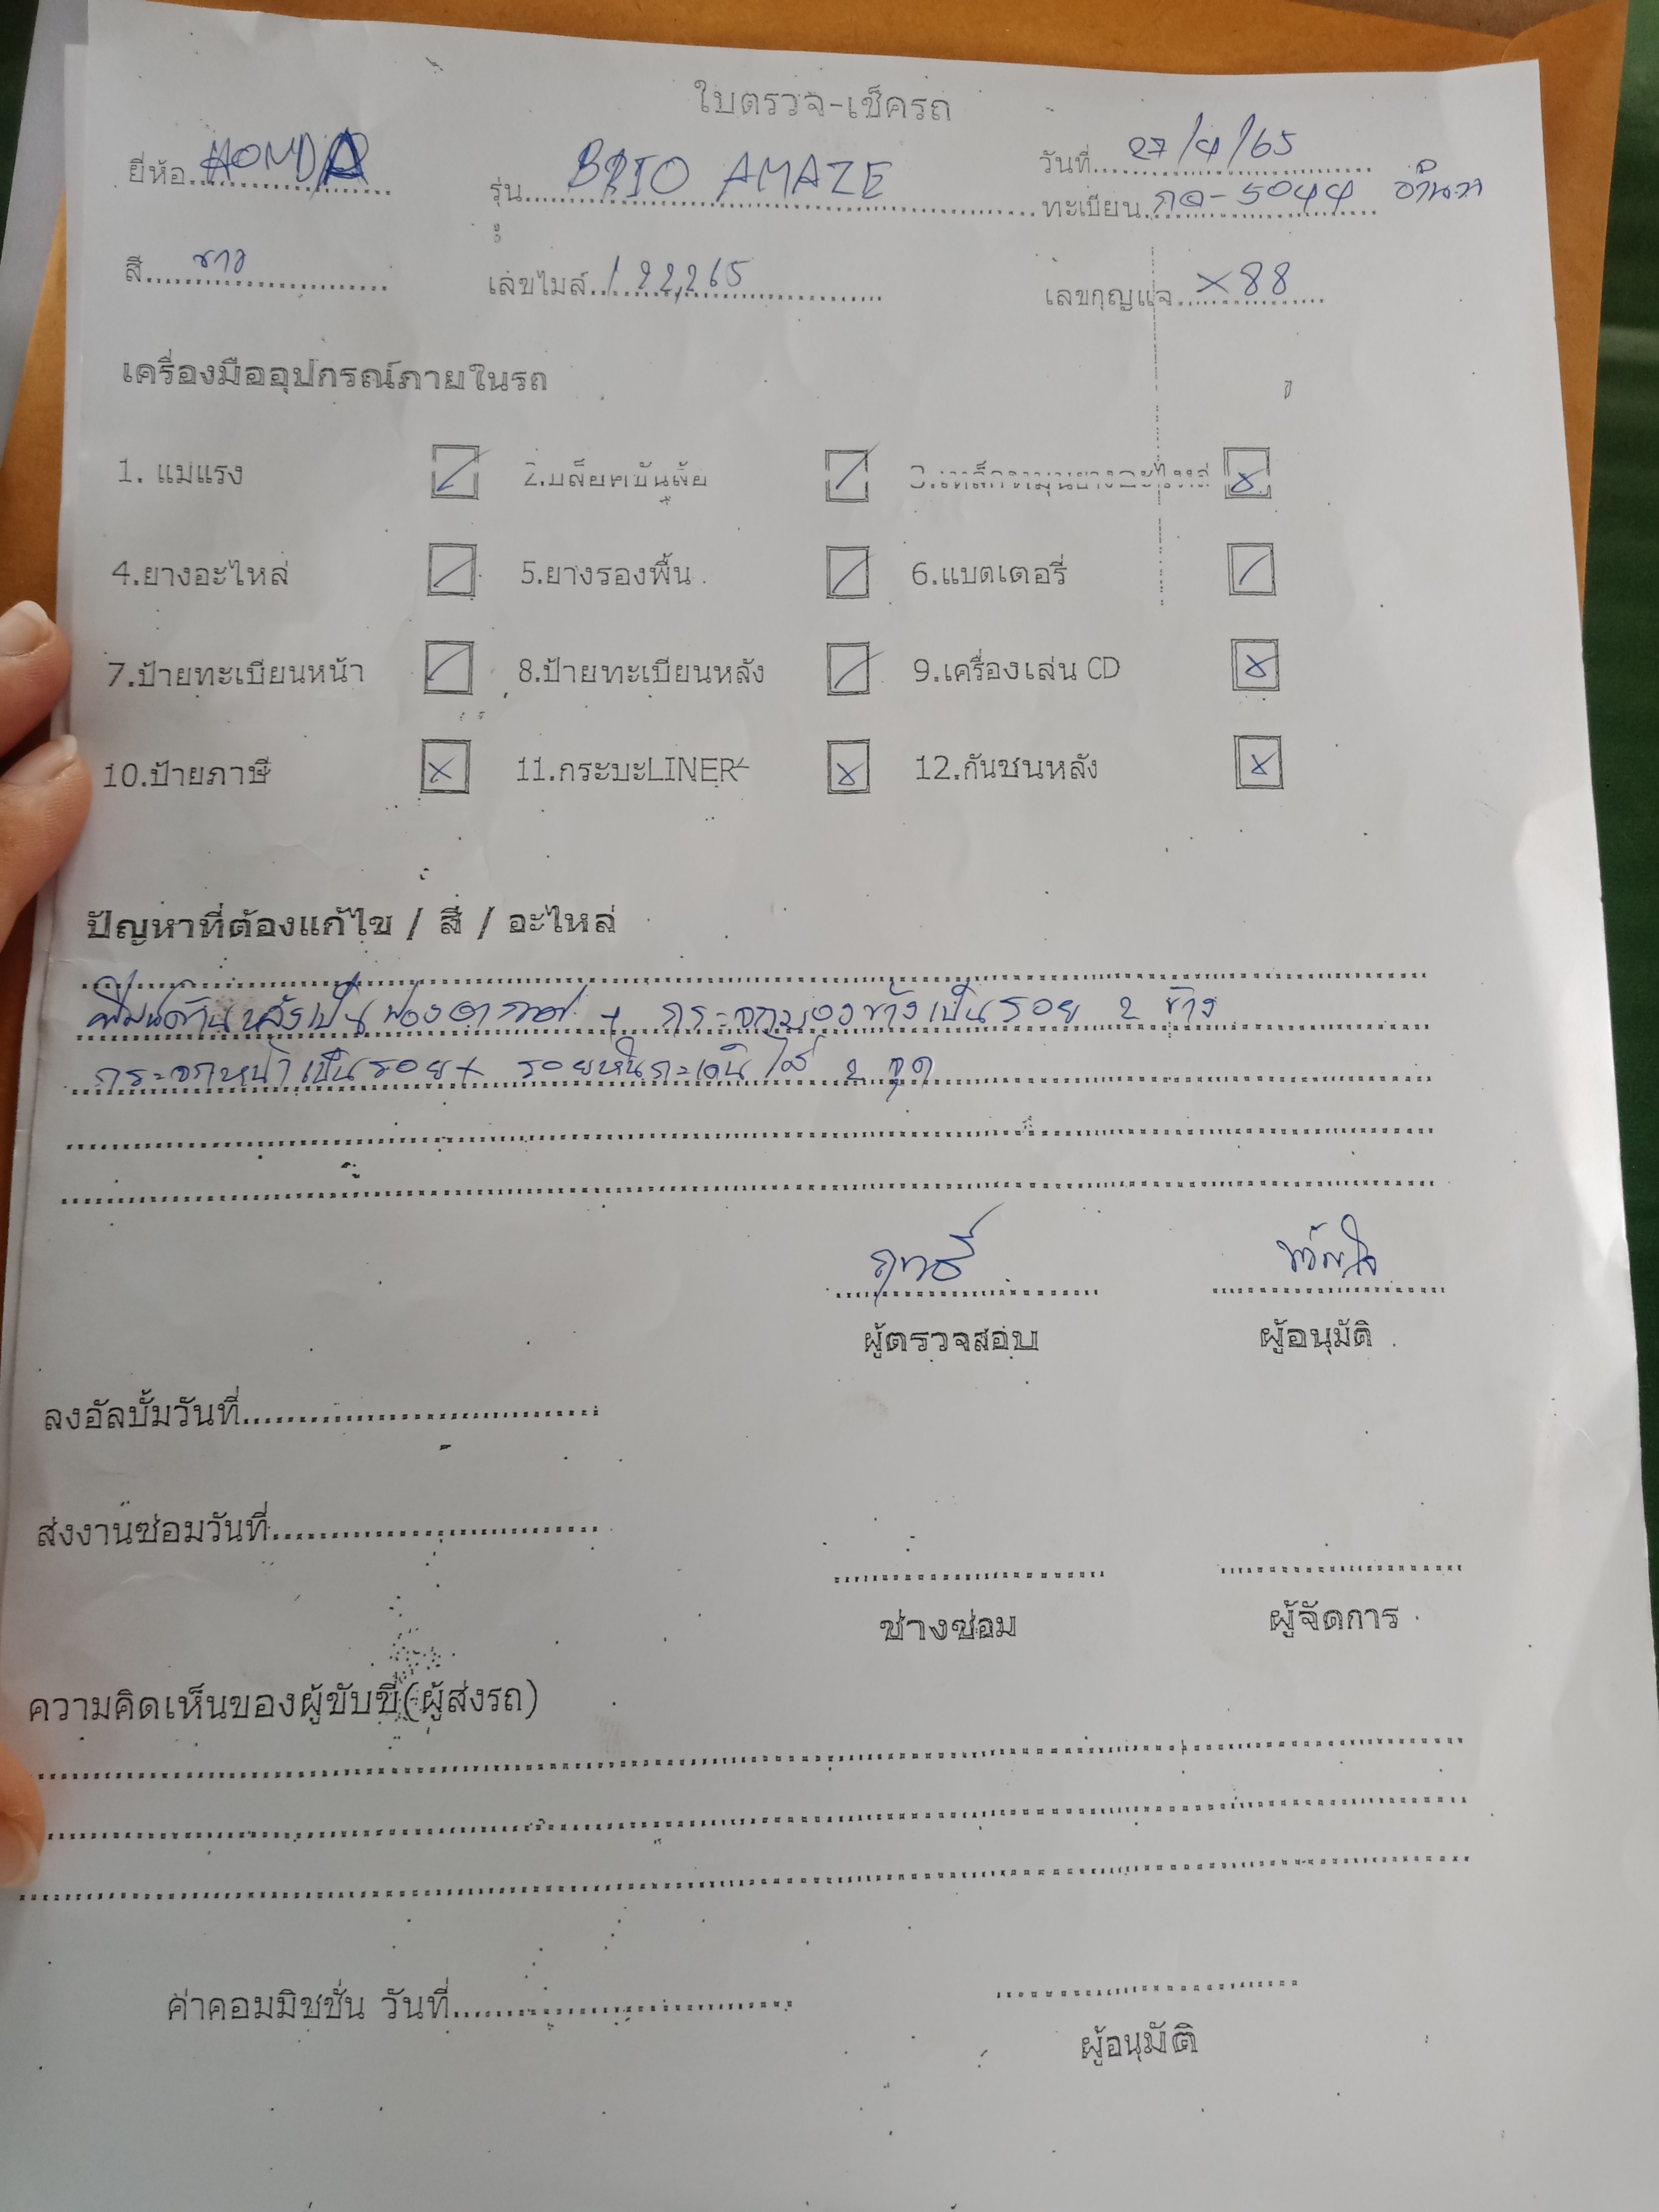 ใบตรวจ-เช็ครถ
ยี่ห้อ HONDA รุ่น BRIO AMAZE วันที่ 27/4/65
ทะเบียน 5044
สี ขาว เลขไมล์ 122,265 เลขกุญแจ X88
เครื่องมืออุปกรณ์ภายในรถ
1. แม่แรง 2.บล็อคขันล้อ 3.เหล็กหมุนยางอะไหล่
4.ยางอะไหล่ 5.ยางรองพื้น 6.แบตเตอรี่
7.ป้ายทะเบียนหน้า 8.ป้ายทะเบียนหลัง 9.เครื่องเล่น CD
10.ป้ายภาษี 11.กระบะLINER 12.กันชนหลัง
ปัญหาที่ต้องแก้ไข / สี / อะไหล่
ฟิมล์ด้านหลังเป็นฟองอากาศ + กระจกมองข้างเป็นรอย 2 ข้าง
กระจกหน้าเป็นรอย + รอยหินกะเด็นใส่ 2 จุด
ฤทธิ์
ผู้ตรวจสอบ ผู้อนุมัติ
ลงอัลบั้มวันที่
ส่งงานซ่อมวันที่
ช่างซ่อม ผู้จัดการ
ความคิดเห็นของผู้ขับขี่(ผู้ส่งรถ)
ค่าคอมมิชชั่น วันที่
ผู้อนุมัติ